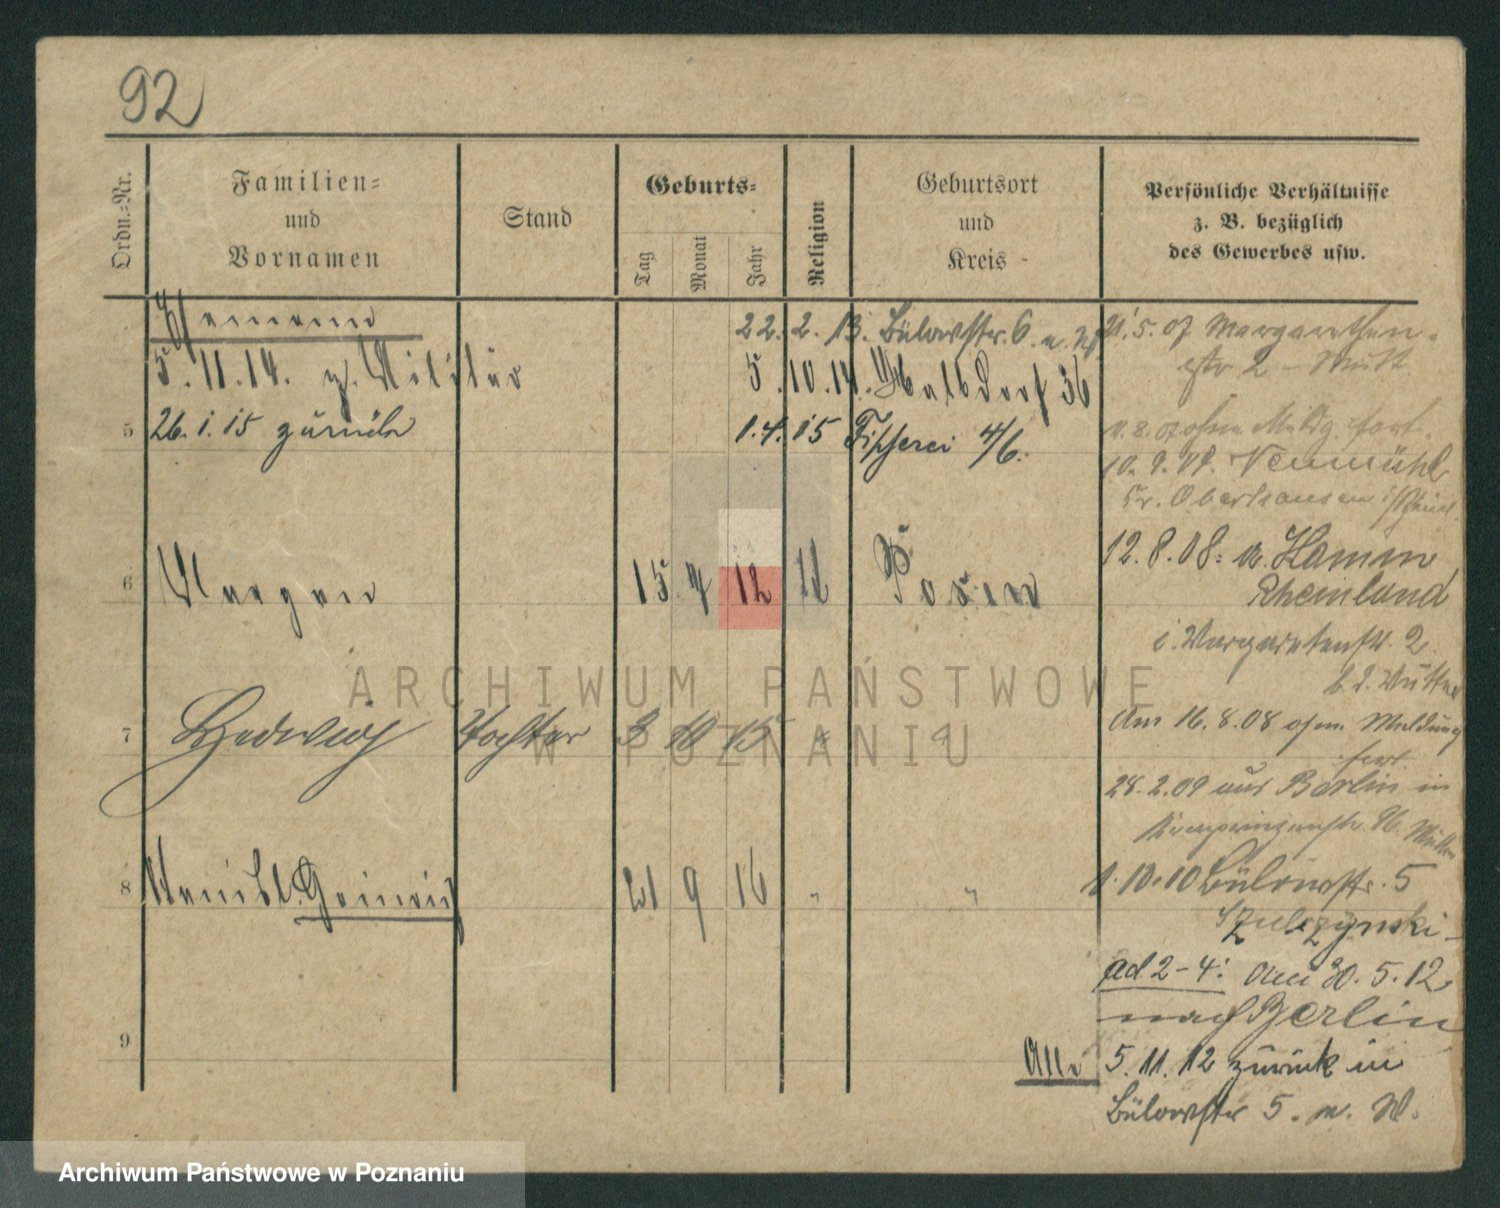 92
Ordn.-Nr.
Familien-
und
Vornamen
Stand
Geburts-
Tag
Monat
Jahr
Religion
Geburtsort
und
Kreis
Persönliche Verhältnisse
z. B. bezüglich
des Gewerbes usw.
Ehemann
22. 2. 13. Bülowstr. 6
5. 11. 14. z. Militär
5. 10. 14. Halbdorf 36
5
26. 1. 15 zurück
1. 4. 15 Fischerei 4/6.
6
15. 4 12
Posen
7
Hedwig
Tochter
3 10 15
8
21 9 16
"
"
9
Alle
21. 5. 07 Margarethen-
str 2 - Mutt
ohne Meldg. fort.
Neumühl
Kr. Oberhausen
12. 8. 08. n. Hamm
Rheinland
i. Margaretenstr. 2
b. d. Mutter
Am 16. 8. 08 ohne Meldung
fort
28. 2. 09 aus Berlin in
1. 10. 10 Bülowstr. 5
Szulczynski-
ad 2-4: Am 30. 5. 12
nach Berlin
5. 11. 12 zurück in
Bülowstr 5. n. W.
ARCHIWUM PAŃSTWOWE
W POZNANIU
Archiwum Państwowe w Poznaniu